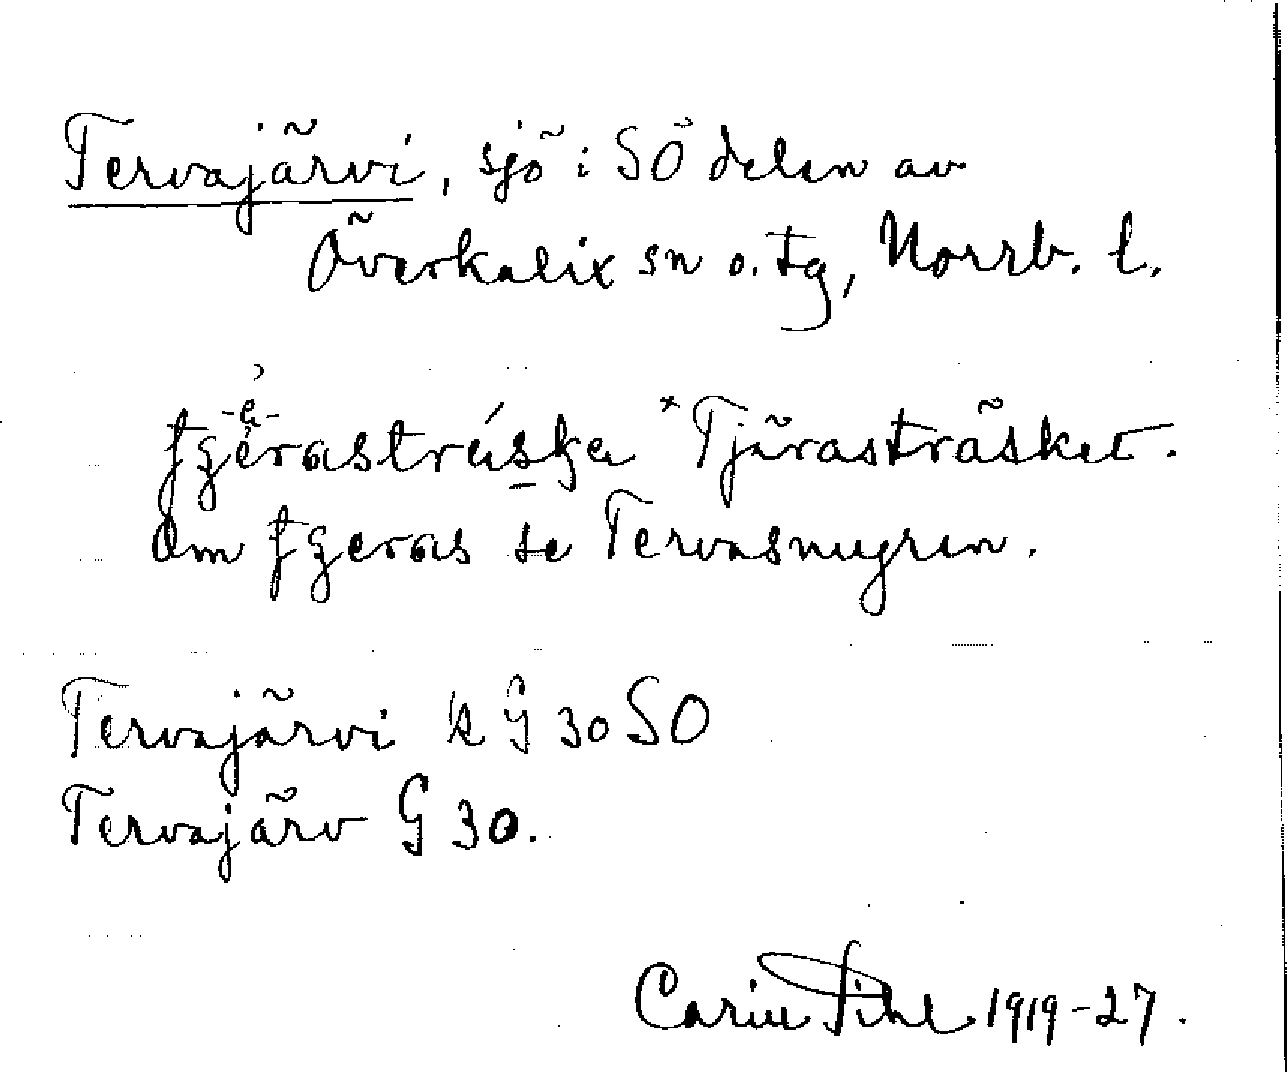 Tervajärvi, sjö i SÖ delen av
Överkalix sn o. tg, Norrb. l.
*Tjärasträsket.
Om se Tervasmyren.
Tervajärvi k G 30 SO
Tervajärv G 30.
Carin Pihl 1919-27.